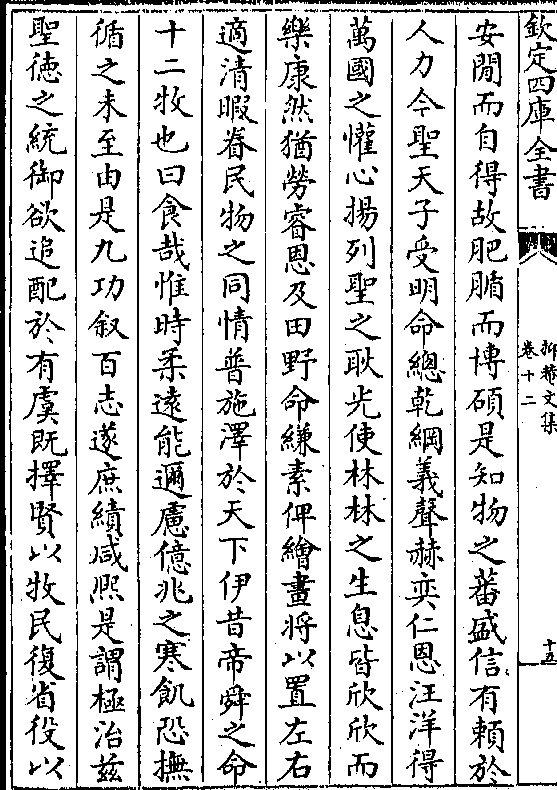 欽定四庫全書
抑菴文集
卷十二
十五
安閒而自得故肥腯而博碩是知物之蕃盛信有賴於
人力今聖天子受明命總乾綱義聲赫奕仁恩汪洋得
萬國之懽心揚列聖之耿光使林林之生息皆欣欣而
樂康然猶勞睿恩及田野命縑素俾繪畫將以置左右
適清暇眷民物之同情普施澤於天下伊昔帝舜之命
十二牧也曰食哉惟時柔遠能邇慮億兆之寒飢恐撫
循之未至由是九功叙百志遂庶績咸熙是謂極治兹
聖徳之統御欲追配於有虞既擇賢以牧民復省役以